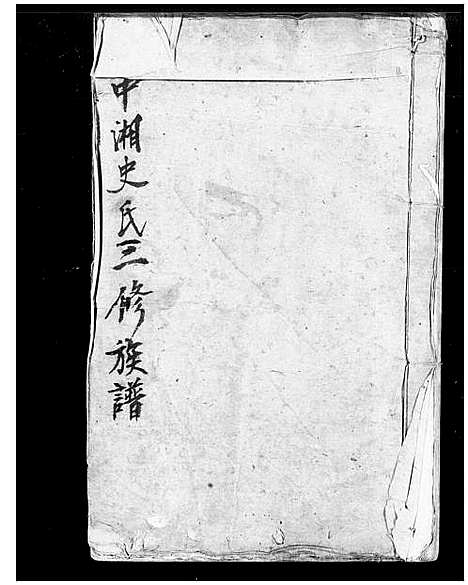 中湘史氏三修族譜